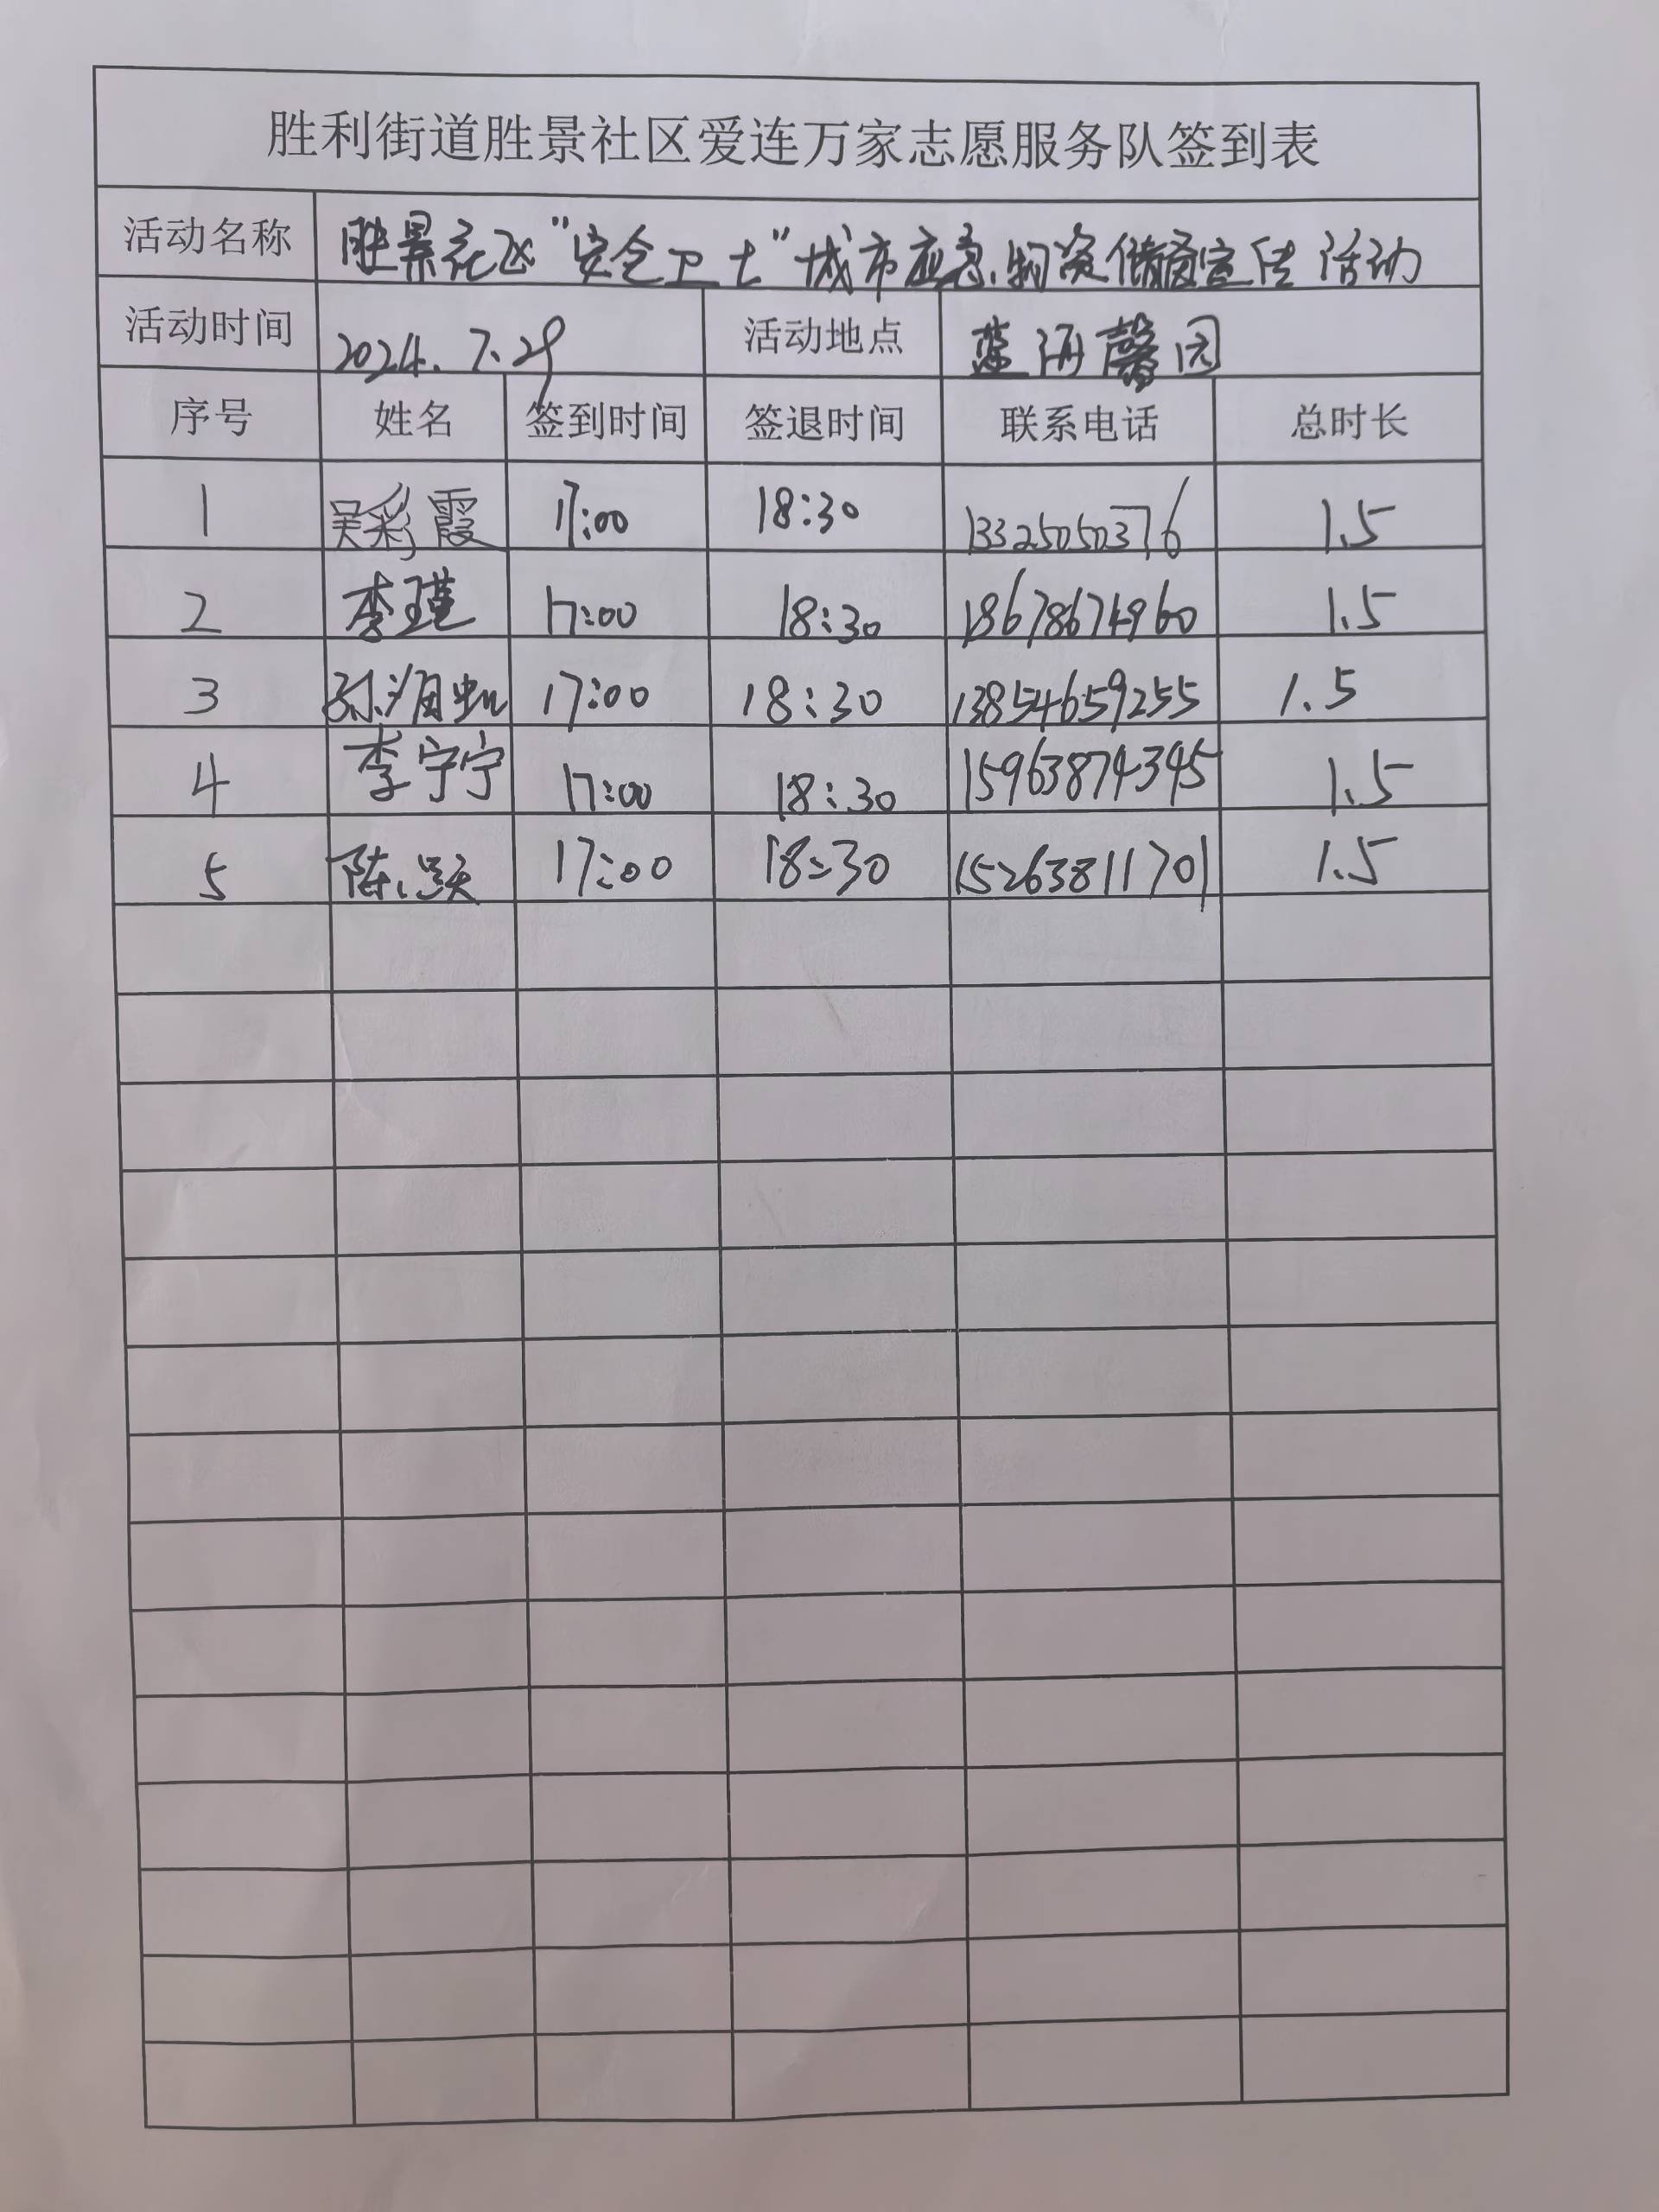 胜利街道胜景社区爱连万家志愿服务队签到表
活动名称 胜景社区"安全卫士"城市应急物资储备宣传活动
活动时间 2024.7.29 活动地点 蓝海馨园
序号 姓名 签到时间 签退时间 联系电话 总时长
1 吴彩霞 17:00 18:30 13325050376 1.5
2 李瑾 17:00 18:30 18678674960 1.5
3 孙 17:00 18:30 13854659255 1.5
4 李宁宁 17:00 18:30 15963874345 1.5
5 陈 17:00 18:30 15263811701 1.5